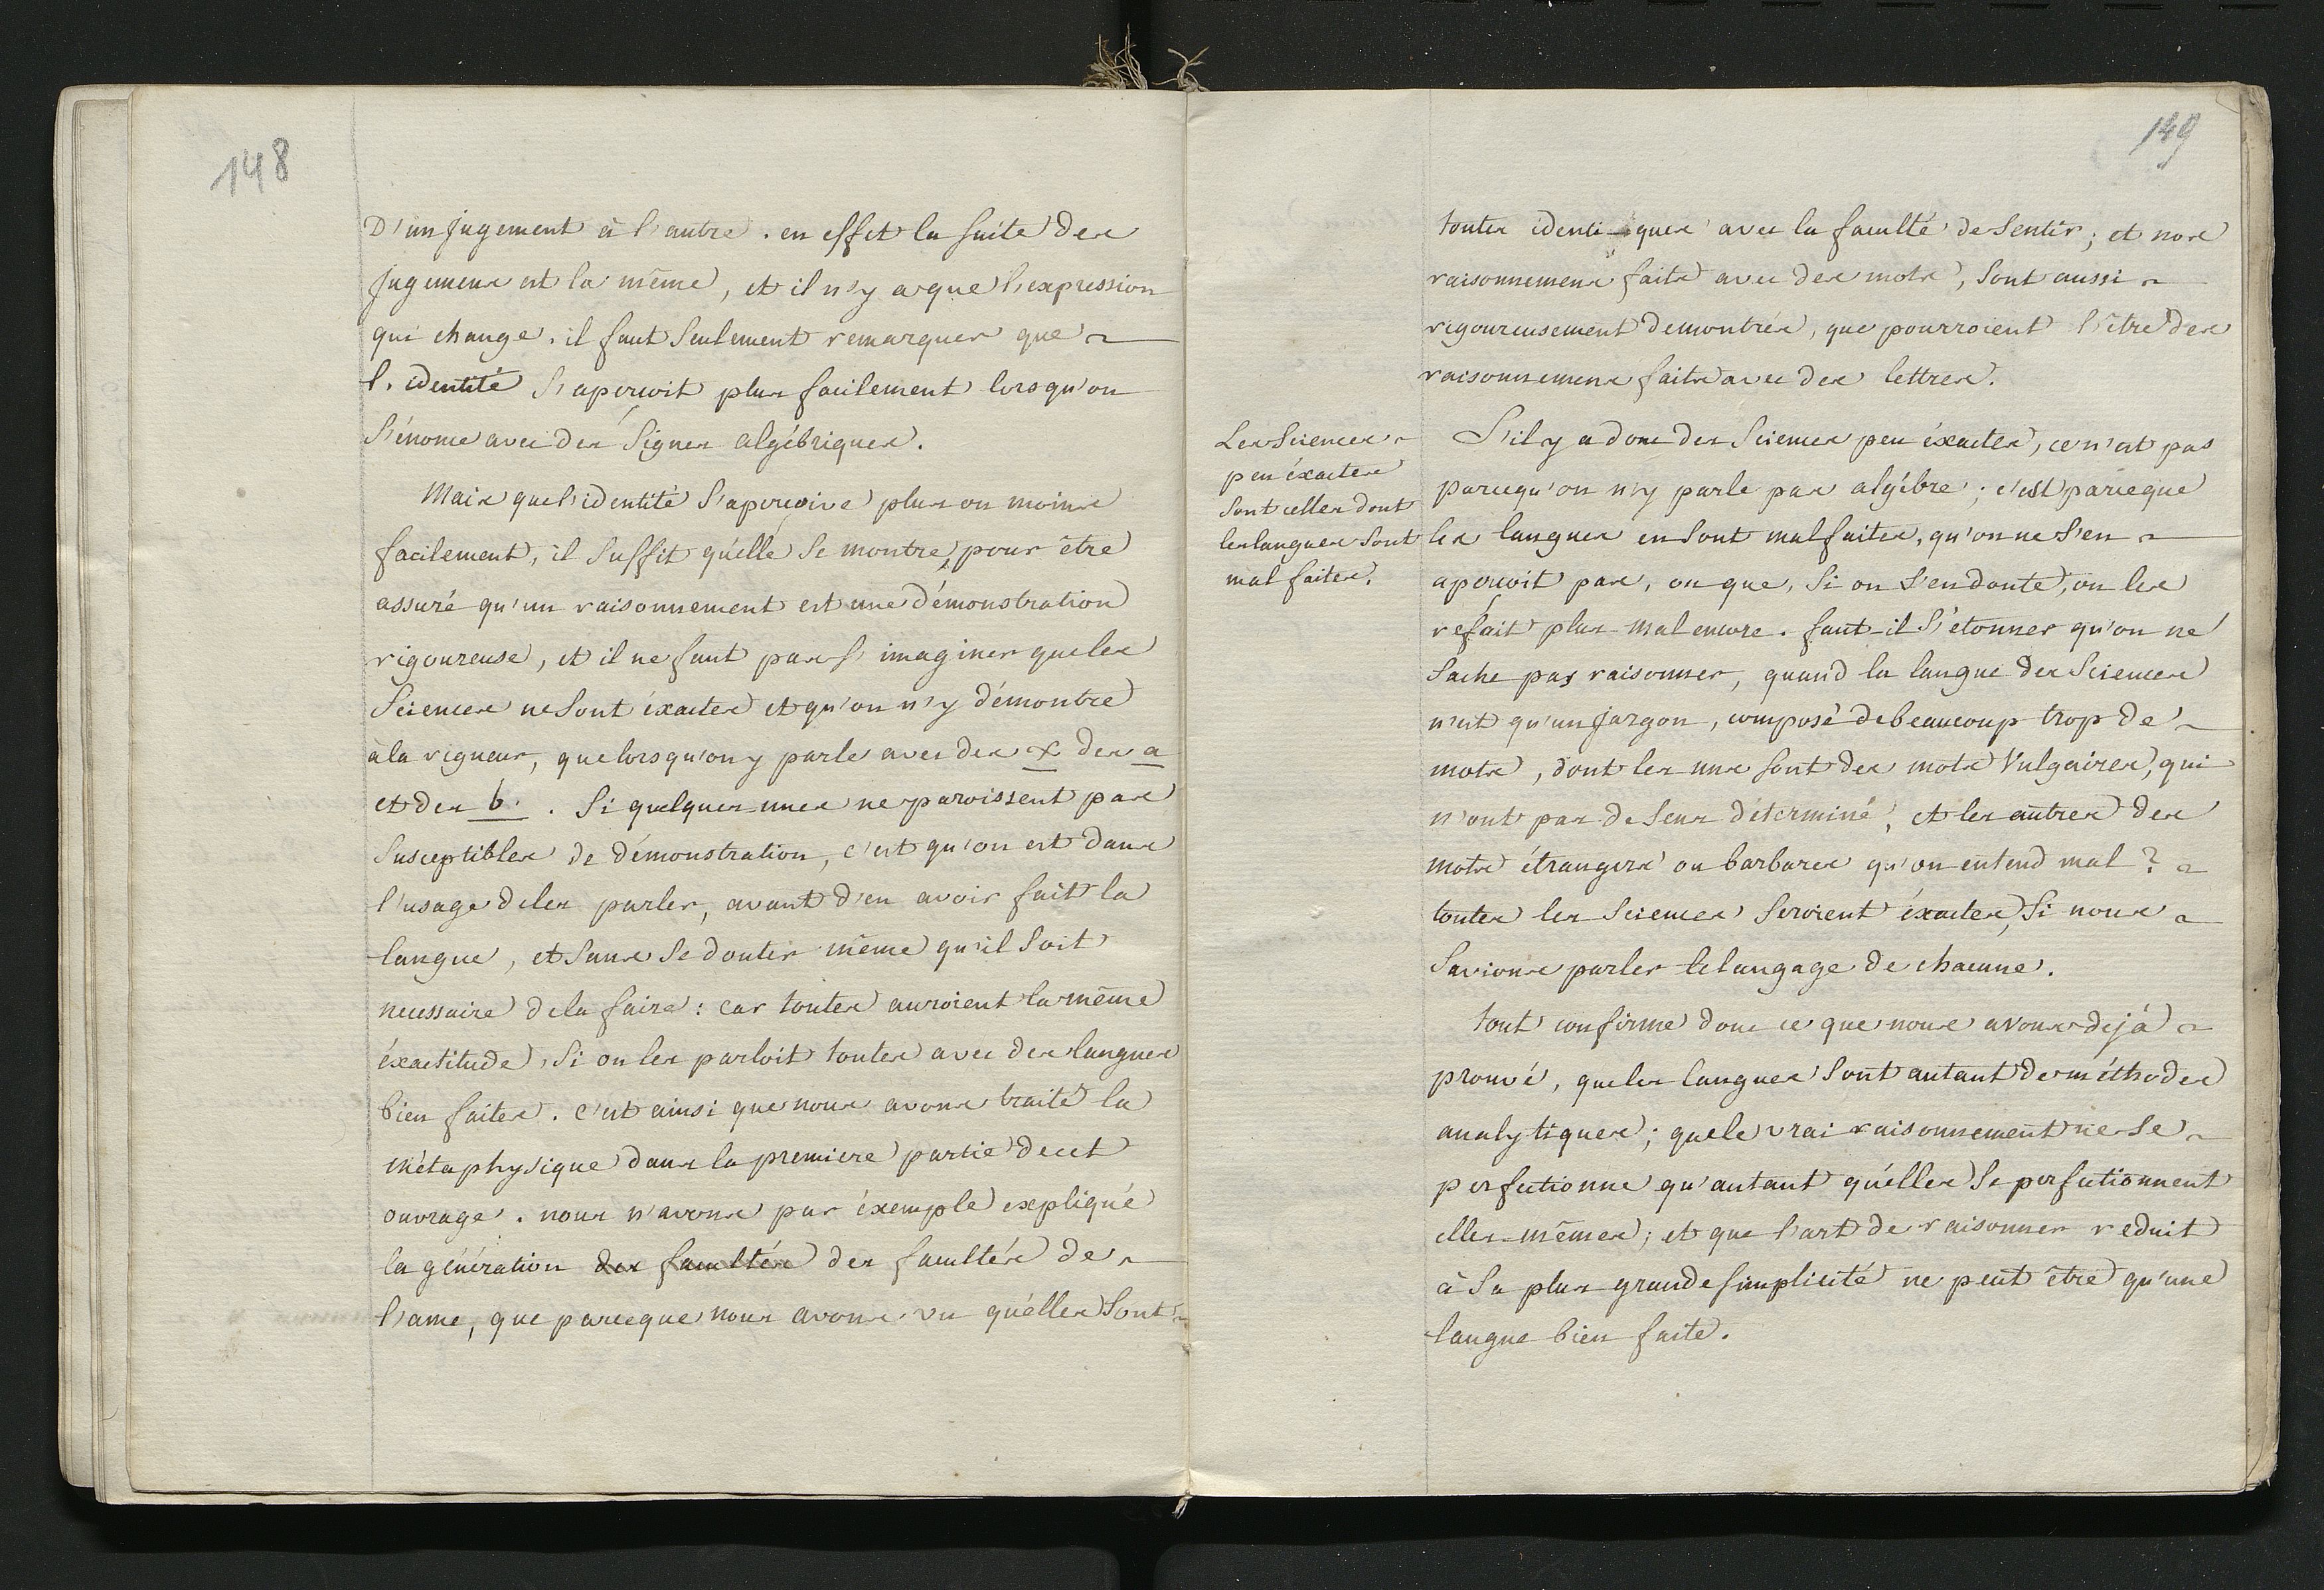 148
D'un jugement à l'autre. en effet la suite des
jugemens est la même, et il n'y a que l'expression
qui change. il faut seulement remarquer que
l'identité s'apercoit plus facilement lorsqu'on
s'énonce avec des signes algébriques.
Mais que l'identité s'aperçoive plus ou moins
facilement, il suffit qu'elle se montre, pour être
assuré qu'un raisonnement est une démonstration
rigoureuse, et il ne faut pas s'imaginer que les
sciences ne sont éxactes et qu'on n'y démontre
à la rigueur, que lorsqu'on y parle avec des x des a
et des b. Si quelques unes ne paroissent pas
susceptibles de démonstration, c'est qu'on est dans
l'usage de les parler, avant d'en avoir fait la
langue, et sans se douter même qu'il soit
necessaire de la faire : car toutes auroient la même
éxactitude, si on les parloit toutes avec des langues
bien faites. c'est ainsi que nous avons traité la
métaphysique dans la premiere partie de cet
ouvrage. nous n'avons par éxemple expliqué
la génération des facultés des facultés de
l'ame, que parceque nous avons vu qu'elles sont
149
toutes identi-ques avec la faculté de sentir ; et nos
raisonnemens faits avec des mots, sont aussi
rigoureusement demontrés, que pourroient l'être des
raisonnemens faits avec des lettres.
Les Sciences
peu éxactes
sont celles dont
les langues sont
mal faites.
S'il y a donc des sciences peu éxactes, ce n'est pas
parcequ'on n'y parle pas algébre ; c'est parceque
les langues en sont mal faites, qu'on ne s'en
apercoit pas, ou que, si on s'en doute, on les
réfait plus mal encore. faut-il s'étonner qu'on ne
sache pas raisonner, quand la langue des sciences
n'est qu'un jargon, composé de beaucoup trop de
mots, dont les uns sont des mots Vulgaires, qui
n'ont pas de sens déterminé, et les autres des
mots étrangers ou barbares qu'on entend mal ?
toutes les sciences seroient éxactes, si nous
savions parler le langage de chacune.
tout confirme donc ce que nous avons dejà
prouvé, que les langues sont autant de méthodes
analytiques ; que le vrai raisonnement ne se
perfectionne qu'autant qu'elles se perfectionnent
elles-mêmes ; et que l'art de raisonner reduit
à sa plus grande simplicité ne peut être qu'une
langue bien faite.